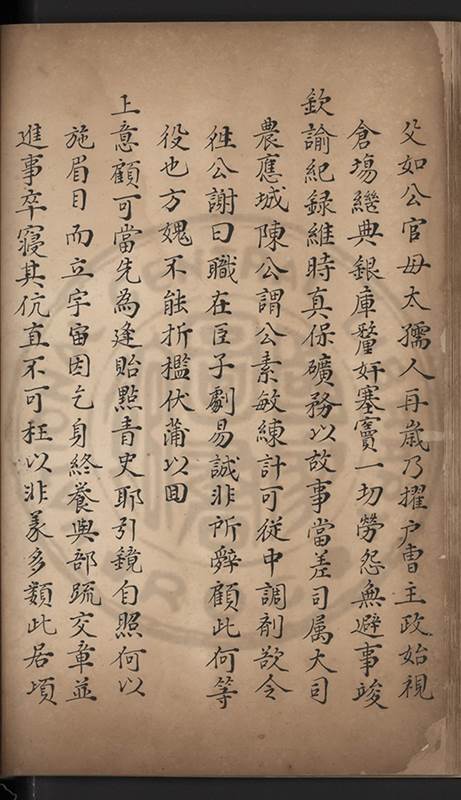 父如公官母太孺人再歲乃擢户曹主政始視
倉塲繼典銀庫釐奸塞竇一切勞怨無避事竣
欽諭紀録維時真保礦務以故事當差司属大司
農應城陳公謂公素敏練計可従中調剤欲令
徃公謝曰職在臣子劇易誠非所辭顧此何等
役也方媿不能折檻伏蒲以回
上意顧可當先為逢貽㸃青史耶引鏡自照何以
施眉目而立宇宙因乞身終養輿部疏交章並
進事卒寢其伉直不可枉以非義多類此居頃